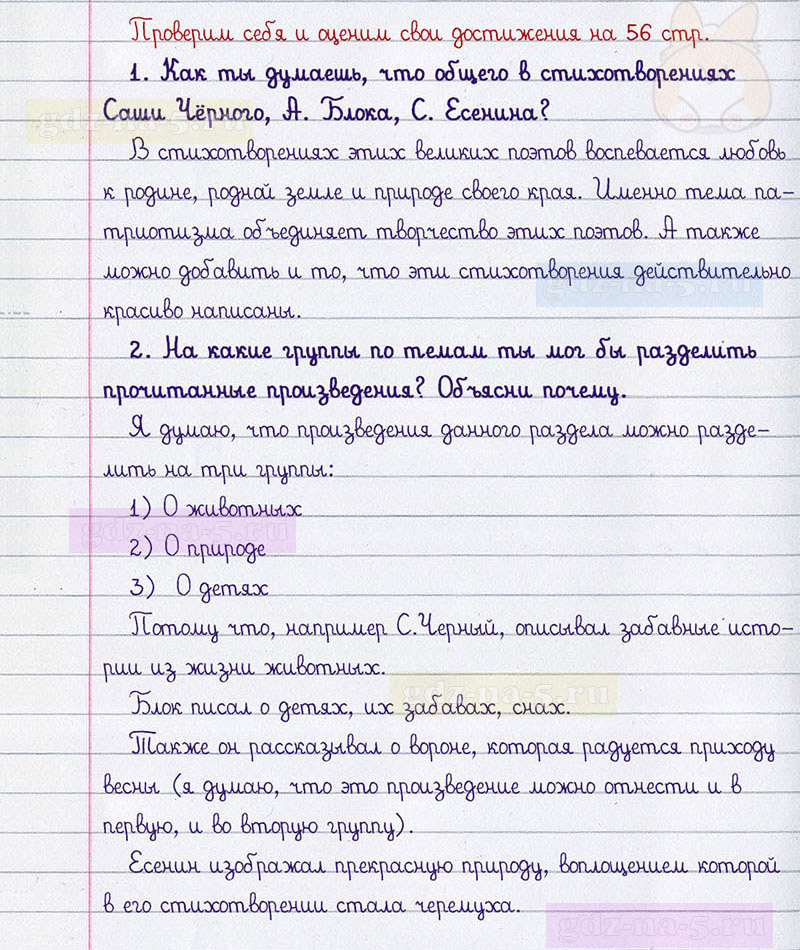 Проверим себя и оценим свои достижения на 56 стр.
1. Как ты думаешь, что общего в стихотворениях
Саши Чёрного, А. Блока, С. Есенина?
В стихотворениях этих великих поэтов воспевается любовь
к родине, родной земле и природе своего края. Именно тема па-
триотизма объединяет творчество этих поэтов. А также
можно добавить и то, что эти стихотворения действительно
красиво написаны.
2. На какие группы по темам ты мог бы разделить
прочитанные произведения? Объясни почему.
Я думаю, что произведения данного раздела можно разде-
лить на три группы:
1) О животных
2) О природе
3) О детях
Потому что, например С.Черный, описывал забавные исто-
рии из жизни животных.
Блок писал о детях, их забавах, снах.
Также он рассказывал о вороне, которая радуется приходу
весны (я думаю, что это произведение можно отнести и в
первую, и во вторую группу).
Есенин изображал прекрасную природу, воплощением которой
в его стихотворении стала черемуха.
gdz-na-5.ru
gdz-na-5.ru
gdz-na-5.ru
gdz-na-5.ru
gdz-na-5.ru